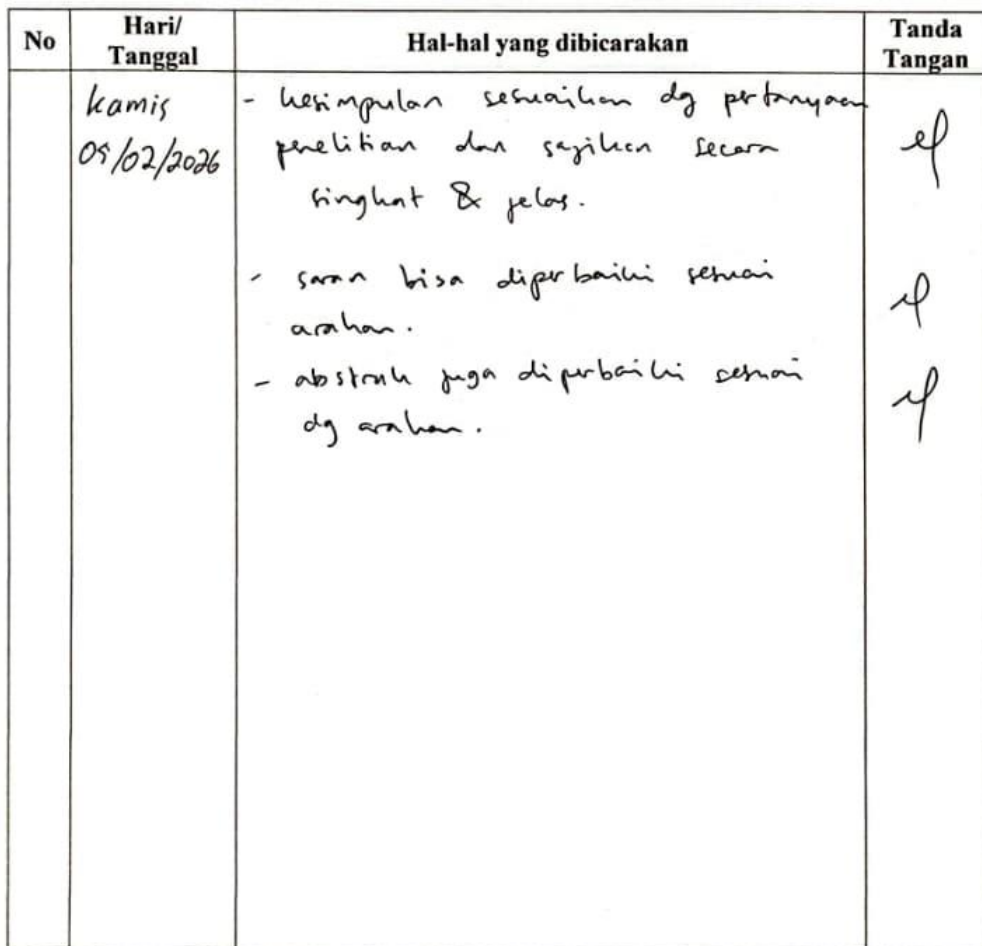 No
Hari/
Tanggal
Hal-hal yang dibicarakan
Tanda
Tangan
Kamis
05/02/2026
- kesimpulan sesuaikan dg pertanyaan
penelitian dan sajikan secara
singkat & jelas.
- saran bisa diperbaiki sesuai
arahan.
- abstrak juga diperbaiki sesuai
dg arahan.